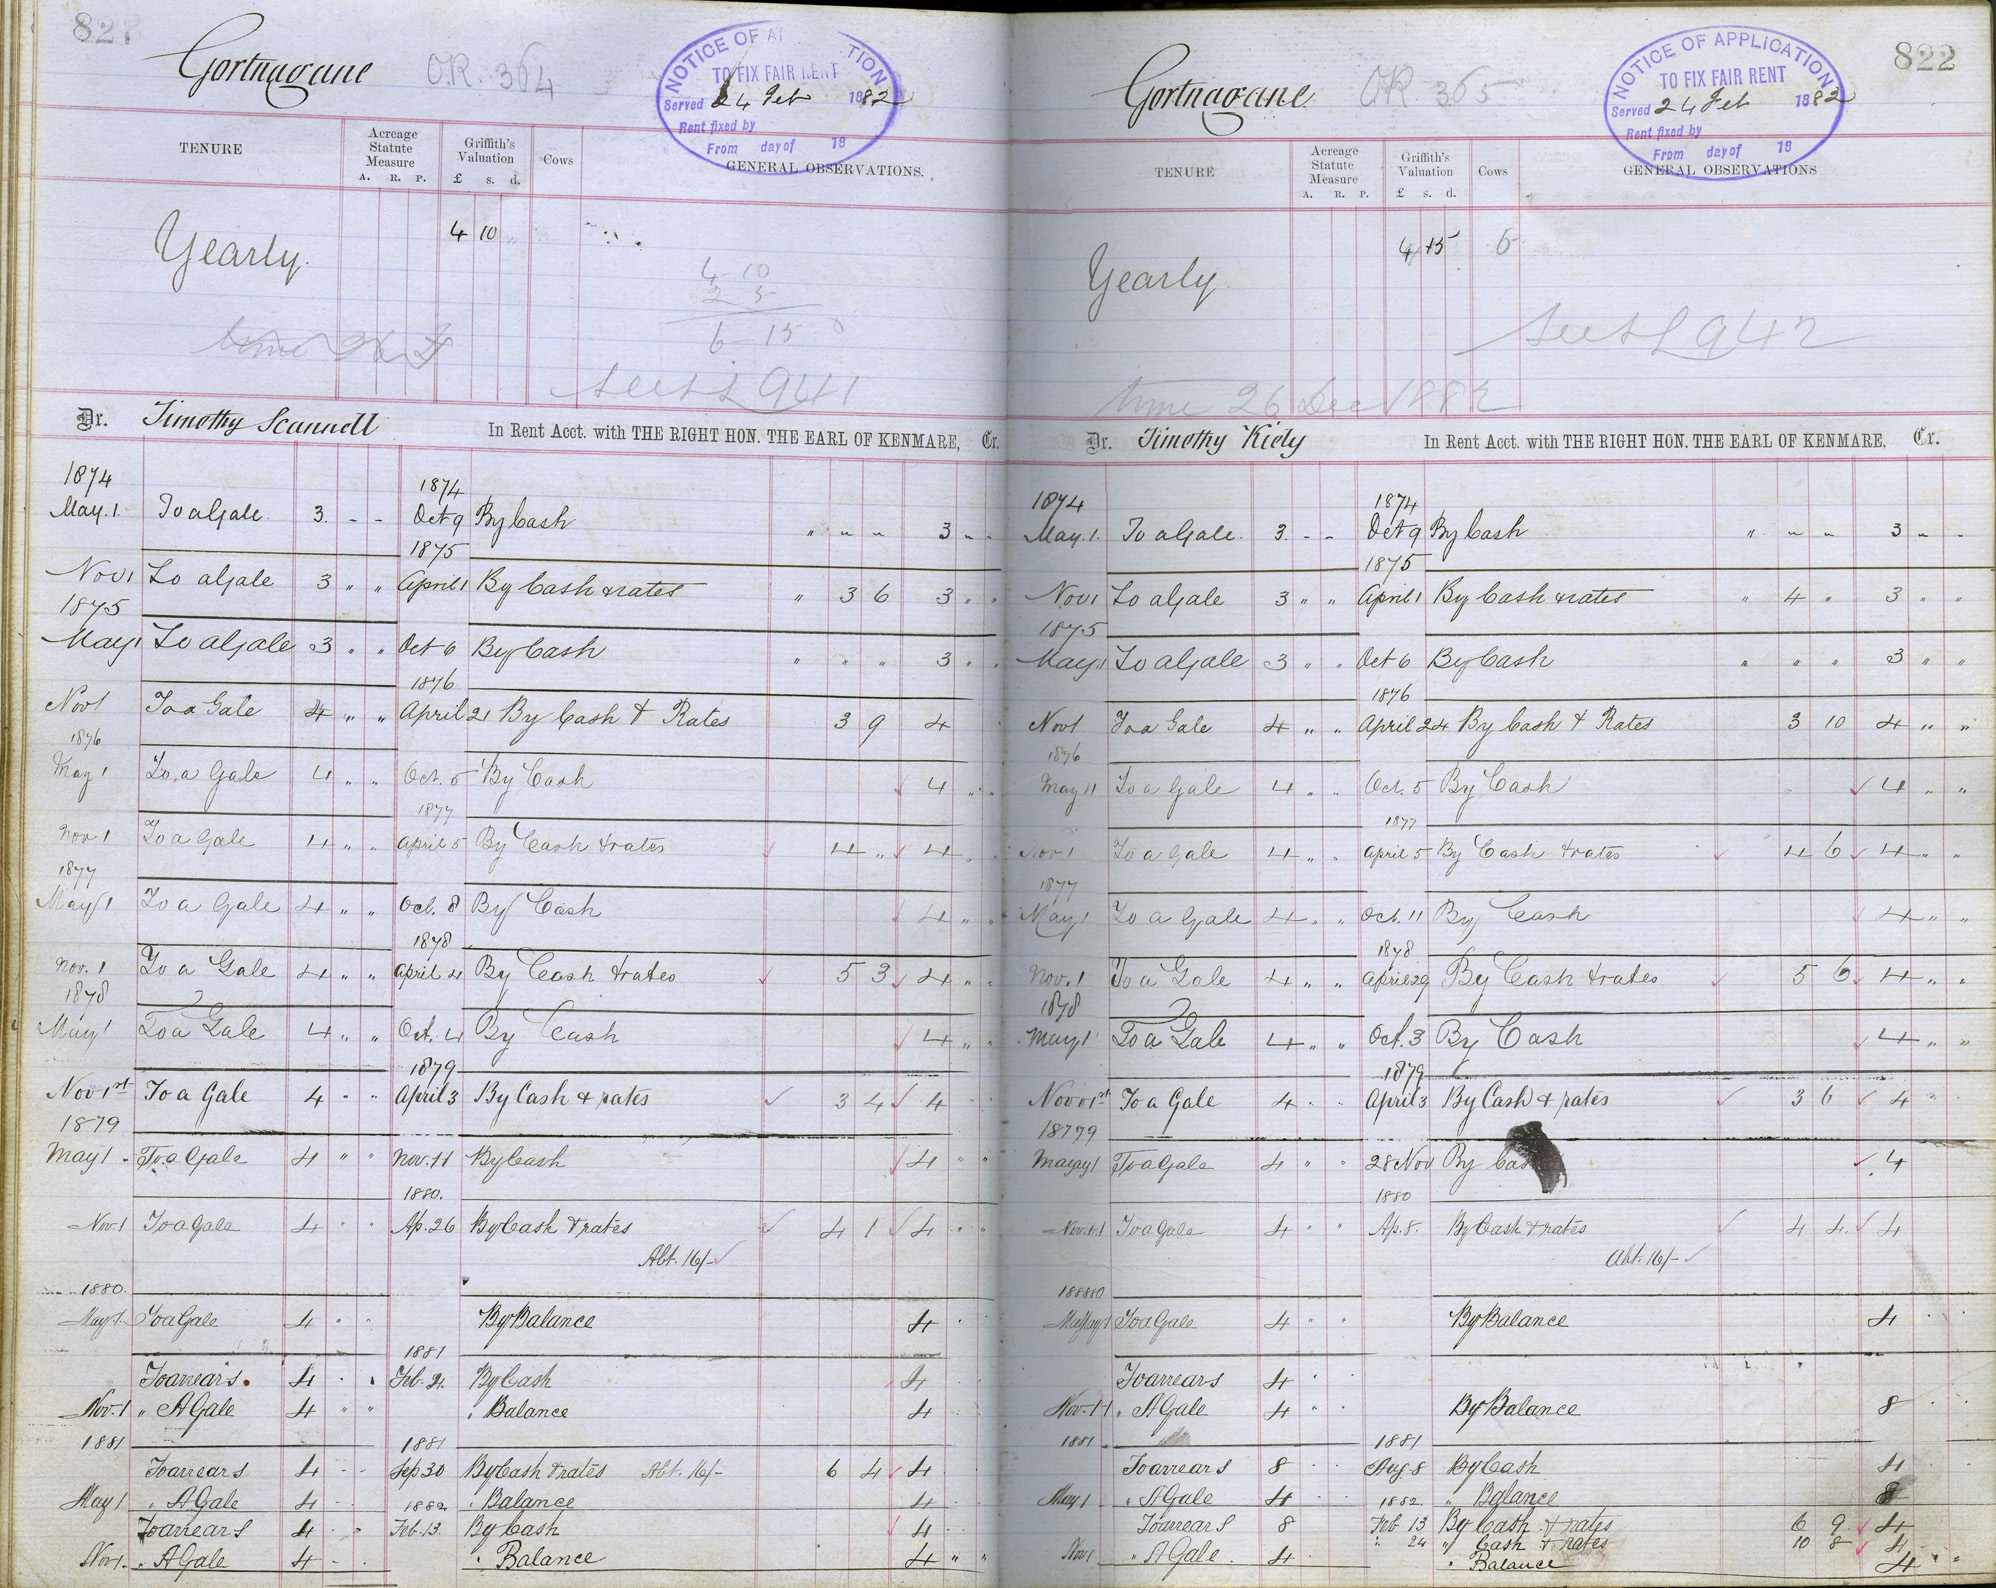 821
Gortnagane O.R. 364
NOTICE OF APPLICATION
TO FIX FAIR RENT
Served 24 Feb 1882
Rent fixed by
From day of 18
TENURE Acreage Statute Measure Griffith's Valuation Cows GENERAL OBSERVATIONS.
A. R. P. £ s. d.
Yearly. 4 10 "
4 10
2 5
6 15 0
941
Dr. Timothy Scannell In Rent Acct. with THE RIGHT HON. THE EARL OF KENMARE, Cr.
1874 1874
May. 1. To a Gale. 3. - - Oct 9 By Cash " " " 3 " "
1875
Nov 1 To a Gale 3 " " April 1 By Cash & rates " 3 6 3 " "
1875
May 1 To a Gale 3 " " Oct 6 By Cash " " " 3 " "
1876
Nov 1 To a Gale 4 " " April 21 By Cash & Rates 3 9 4
1876
May 1 To a Gale 4 " " Oct. 5 By Cash 4 " "
1877
Nov 1 To a Gale 4 " " April 5 By Cash & rates 4 " 4 " "
1877
May 1 To a Gale 4 " " Oct. 8 By Cash 4 " "
1878
Nov. 1 To a Gale 4 " " April 4 By Cash & rates 5 3 4 " "
1878
May 1 To a Gale 4 " " Oct. 4 By Cash 4 " "
1879
Nov 1st To a Gale 4 " " April 3 By Cash & rates 3 4 4
1879
May 1 To a Gale 4 " " Nov. 11 By Cash 4 " "
1880.
Nov. 1 To a Gale 4 " " Ap. 26 By Cash & rates 4 1 4 " "
Abt. 16/-
1880.
May 1 To a Gale 4 " " By Balance 4
1881
To arrears. 4 Feb. 21. By Cash 4
Nov. 1 " A Gale 4 " " " Balance 4
1881 1881
To arrears 4 Sep 30 By Cash & rates Abt. 16/- 6 4 4
May 1 " A Gale 4 1882 " Balance 4
To arrears 4 Feb. 13. By Cash 4
Nov. 1 " A Gale 4 " Balance 4 " "
822
Gortnagane. O.R 365
NOTICE OF APPLICATION
TO FIX FAIR RENT
Served 24 Feb 1882
Rent fixed by
From day of 18
TENURE Acreage Statute Measure Griffith's Valuation Cows GENERAL OBSERVATIONS
A. R. P. £ s. d.
Yearly 4 15 5
942
time 26 Dec 1882
Dr. Timothy Kiely In Rent Acct. with THE RIGHT HON. THE EARL OF KENMARE, Cr.
1874 1874
May. 1. To a Gale. 3. - - Oct 9 By Cash " " " 3 " "
1875
Nov 1 To a Gale 3 " " April 1 By Cash & rates " 4 " 3 " "
1875
May 1 To a Gale 3 " " Oct 6 By Cash " " " 3 " "
1876
Nov 1 To a Gale 4 " " April 24 By Cash & Rates 3 10 4 " "
1876
May 1 To a Gale 4 " " Oct. 5 By Cash 4 " "
1877
Nov 1 To a Gale 4 " " April 5 By Cash & rates 4 6 4 " "
1877
May 1 To a Gale 4 " " Oct. 11 By Cash 4 " "
1878
Nov. 1 To a Gale 4 " " April 29 By Cash & rates 5 6 4 " "
1878
May 1 To a Gale 4 " " Oct. 3 By Cash 4 " "
1879
Nov 1st To a Gale 4 " " April 3 By Cash & rates 3 6 4 "
1879
May 1 To a Gale 4 " " 28 Nov By Cash 4
1880
Nov. 1 To a Gale 4 " " Ap. 8. By Cash & rates 4 4 4
Abt. 16/-
1880
May 1 To a Gale 4 " " By Balance 4
To arrears 4
Nov. 1 " A Gale 4 " By Balance 8
1881 1881
To arrears 8 Aug. 8 By Cash 4
May 1 " A Gale 4 1882. " Balance 8
To arrears 8 Feb 13 By Cash & rates 6 9 4
" 24 " Cash & rates 10 8 4
Nov 1 " A Gale. 4 " Balance 4 " "